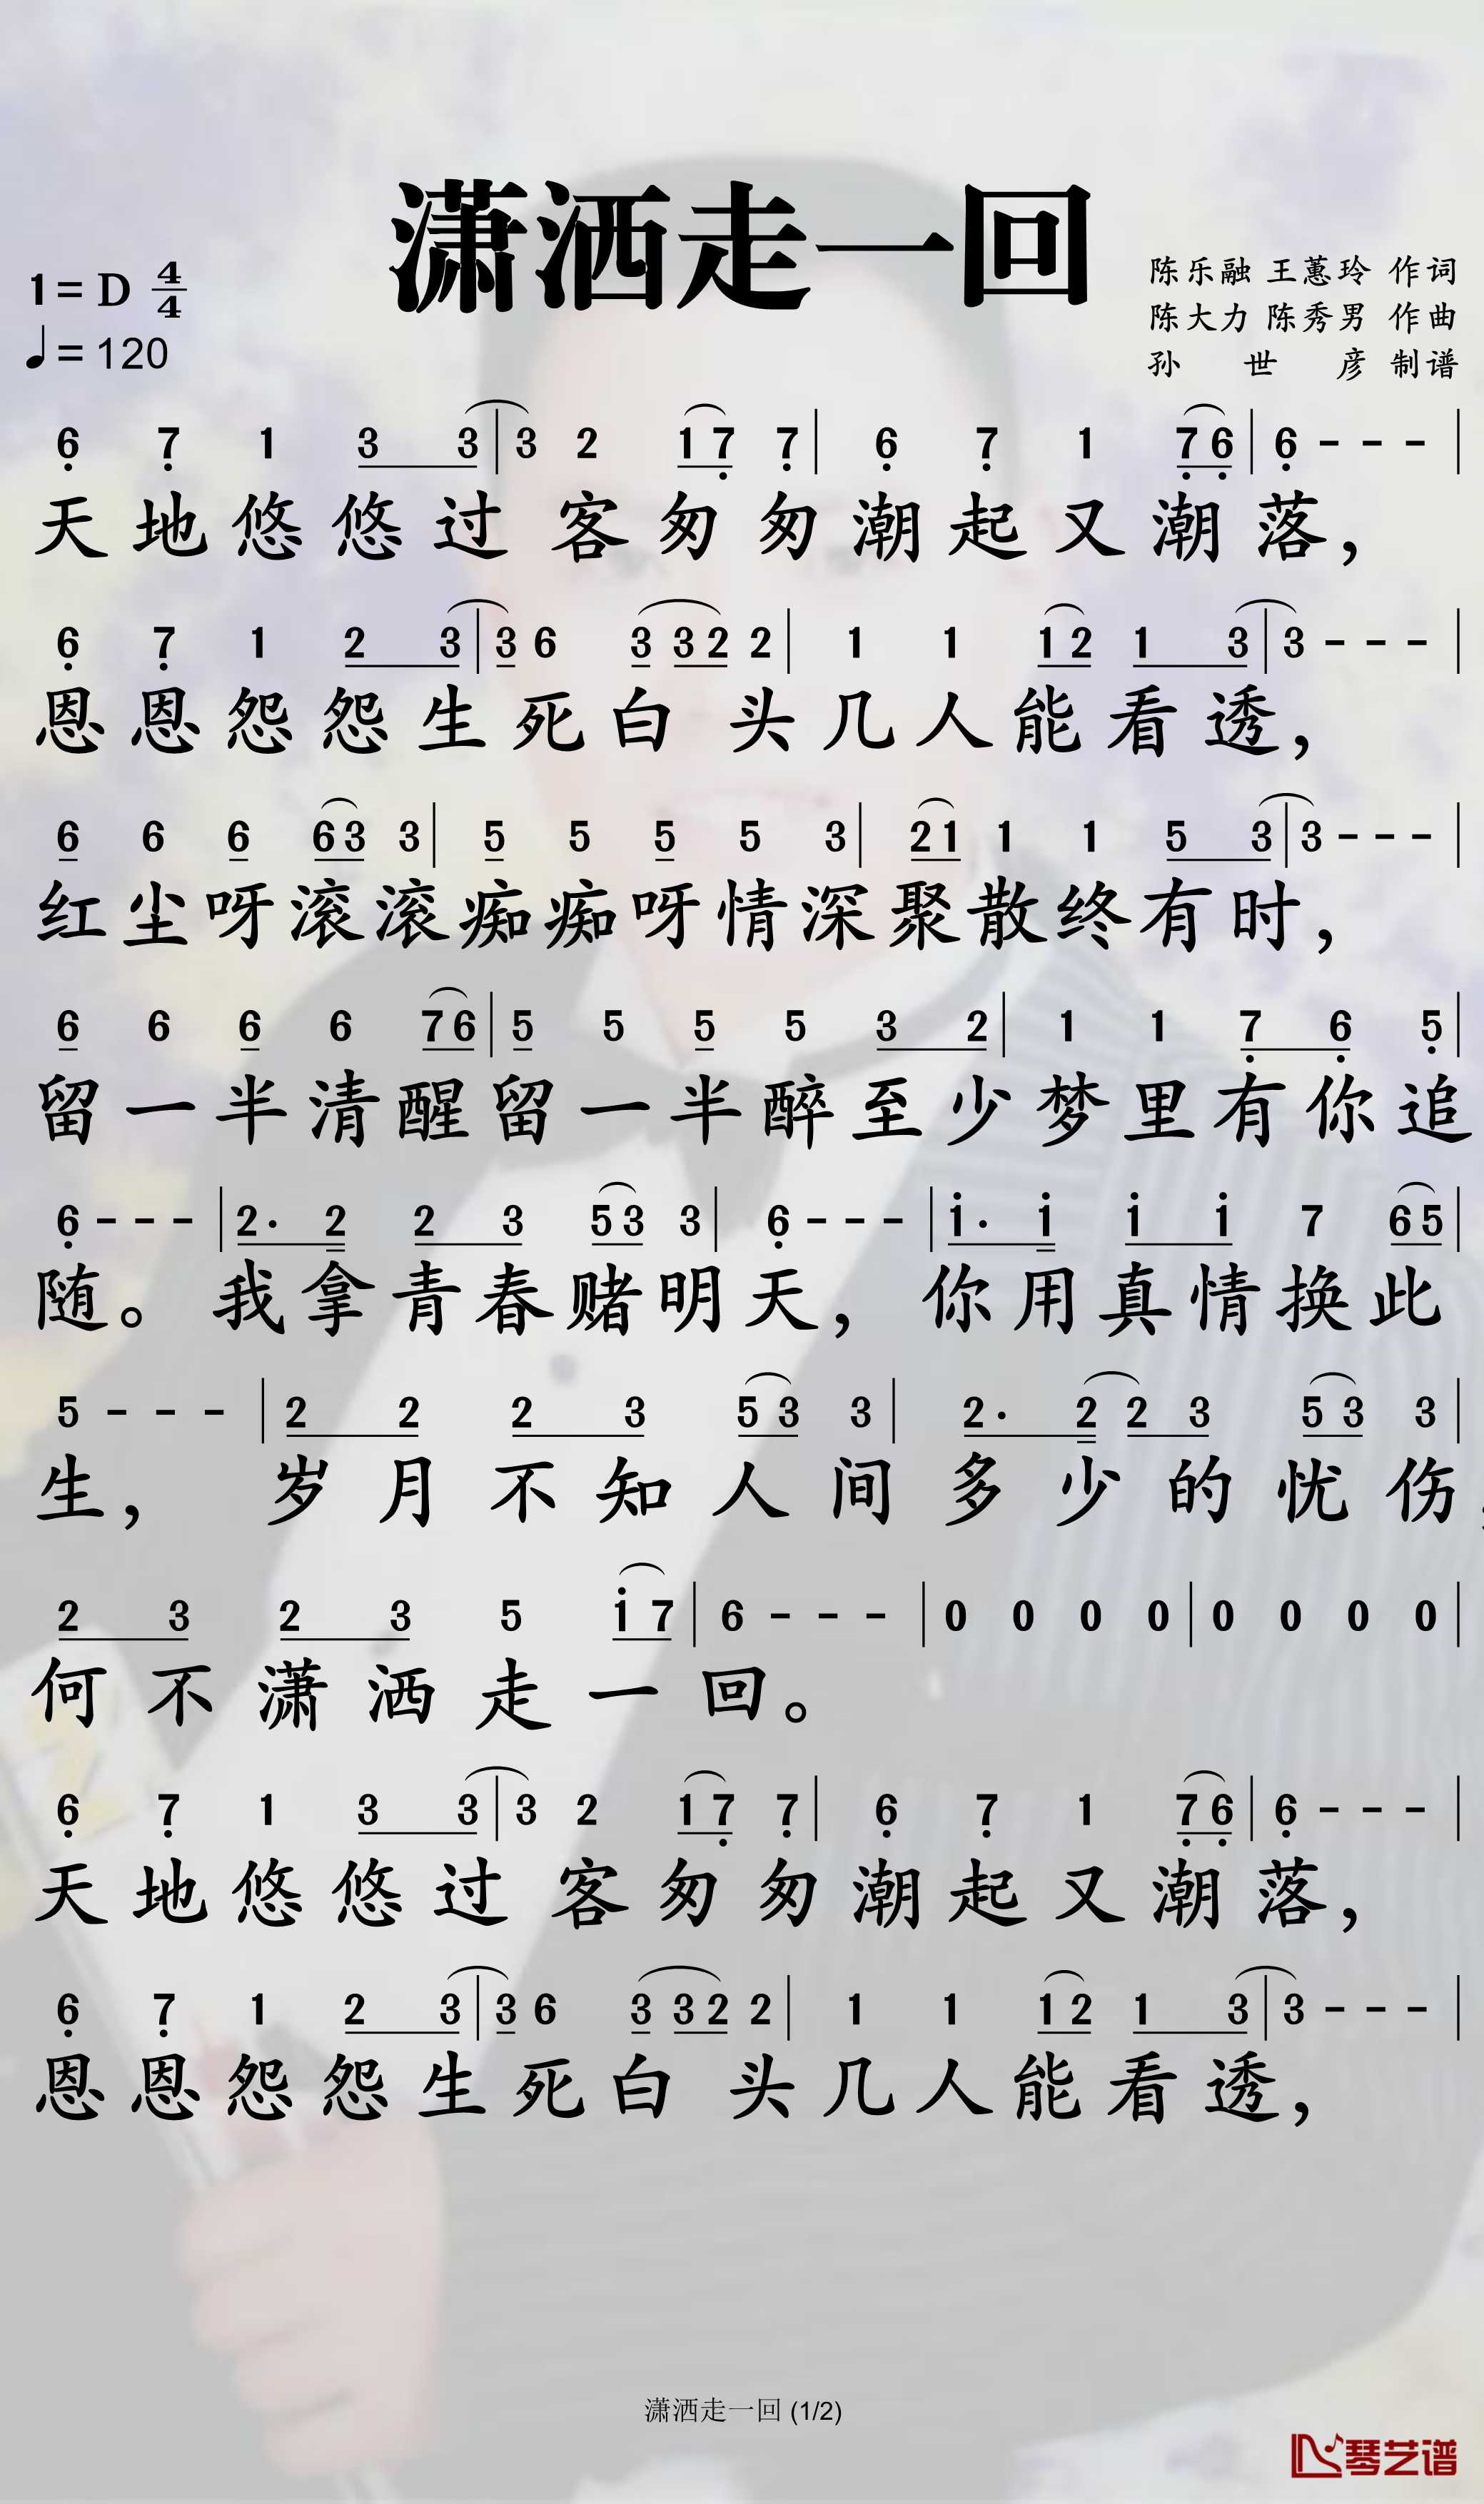 潇洒走一回
1=D 4/4
♩=120
陈乐融 王蕙玲 作词
陈大力 陈秀男 作曲
孙世彦 制谱
6̣ 7̣ 1 3 3 | 3 2 1 7̣ 7̣ | 6̣ 7̣ 1 7̣ 6̣ | 6̣ - - - |
天地悠悠过客匆匆潮起又潮落，
6̣ 7̣ 1 2 3 | 3 6 3 3 2 2 | 1 1 1 2 1 3 | 3 - - - |
恩恩怨怨生死白头几人能看透，
6 6 6 6 3 3 | 5 5 5 5 3 | 2 1 1 1 5 3 | 3 - - - |
红尘呀滚滚痴痴呀情深聚散终有时，
6 6 6 6 7 6 | 5 5 5 5 3 2 | 1 1 7̣ 6̣ 5̣ |
留一半清醒留一半醉至少梦里有你追
6̣ - - - | 2· 2 2 3 5 3 3 | 6̣ - - - | i· i i i 7 6 5 |
随。我拿青春赌明天，你用真情换此
5 - - - | 2 2 2 3 5 3 3 | 2· 2 2 3 5 3 3 |
生，岁月不知人间多少的忧伤，
2 3 2 3 5 i 7 | 6 - - - | 0 0 0 0 | 0 0 0 0 |
何不潇洒走一回。
6̣ 7̣ 1 3 3 | 3 2 1 7̣ 7̣ | 6̣ 7̣ 1 7̣ 6̣ | 6̣ - - - |
天地悠悠过客匆匆潮起又潮落，
6̣ 7̣ 1 2 3 | 3 6 3 3 2 2 | 1 1 1 2 1 3 | 3 - - - |
恩恩怨怨生死白头几人能看透，
潇洒走一回 (1/2)
琴艺谱